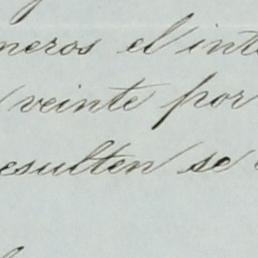 neros el inte
veinte por
esulten se